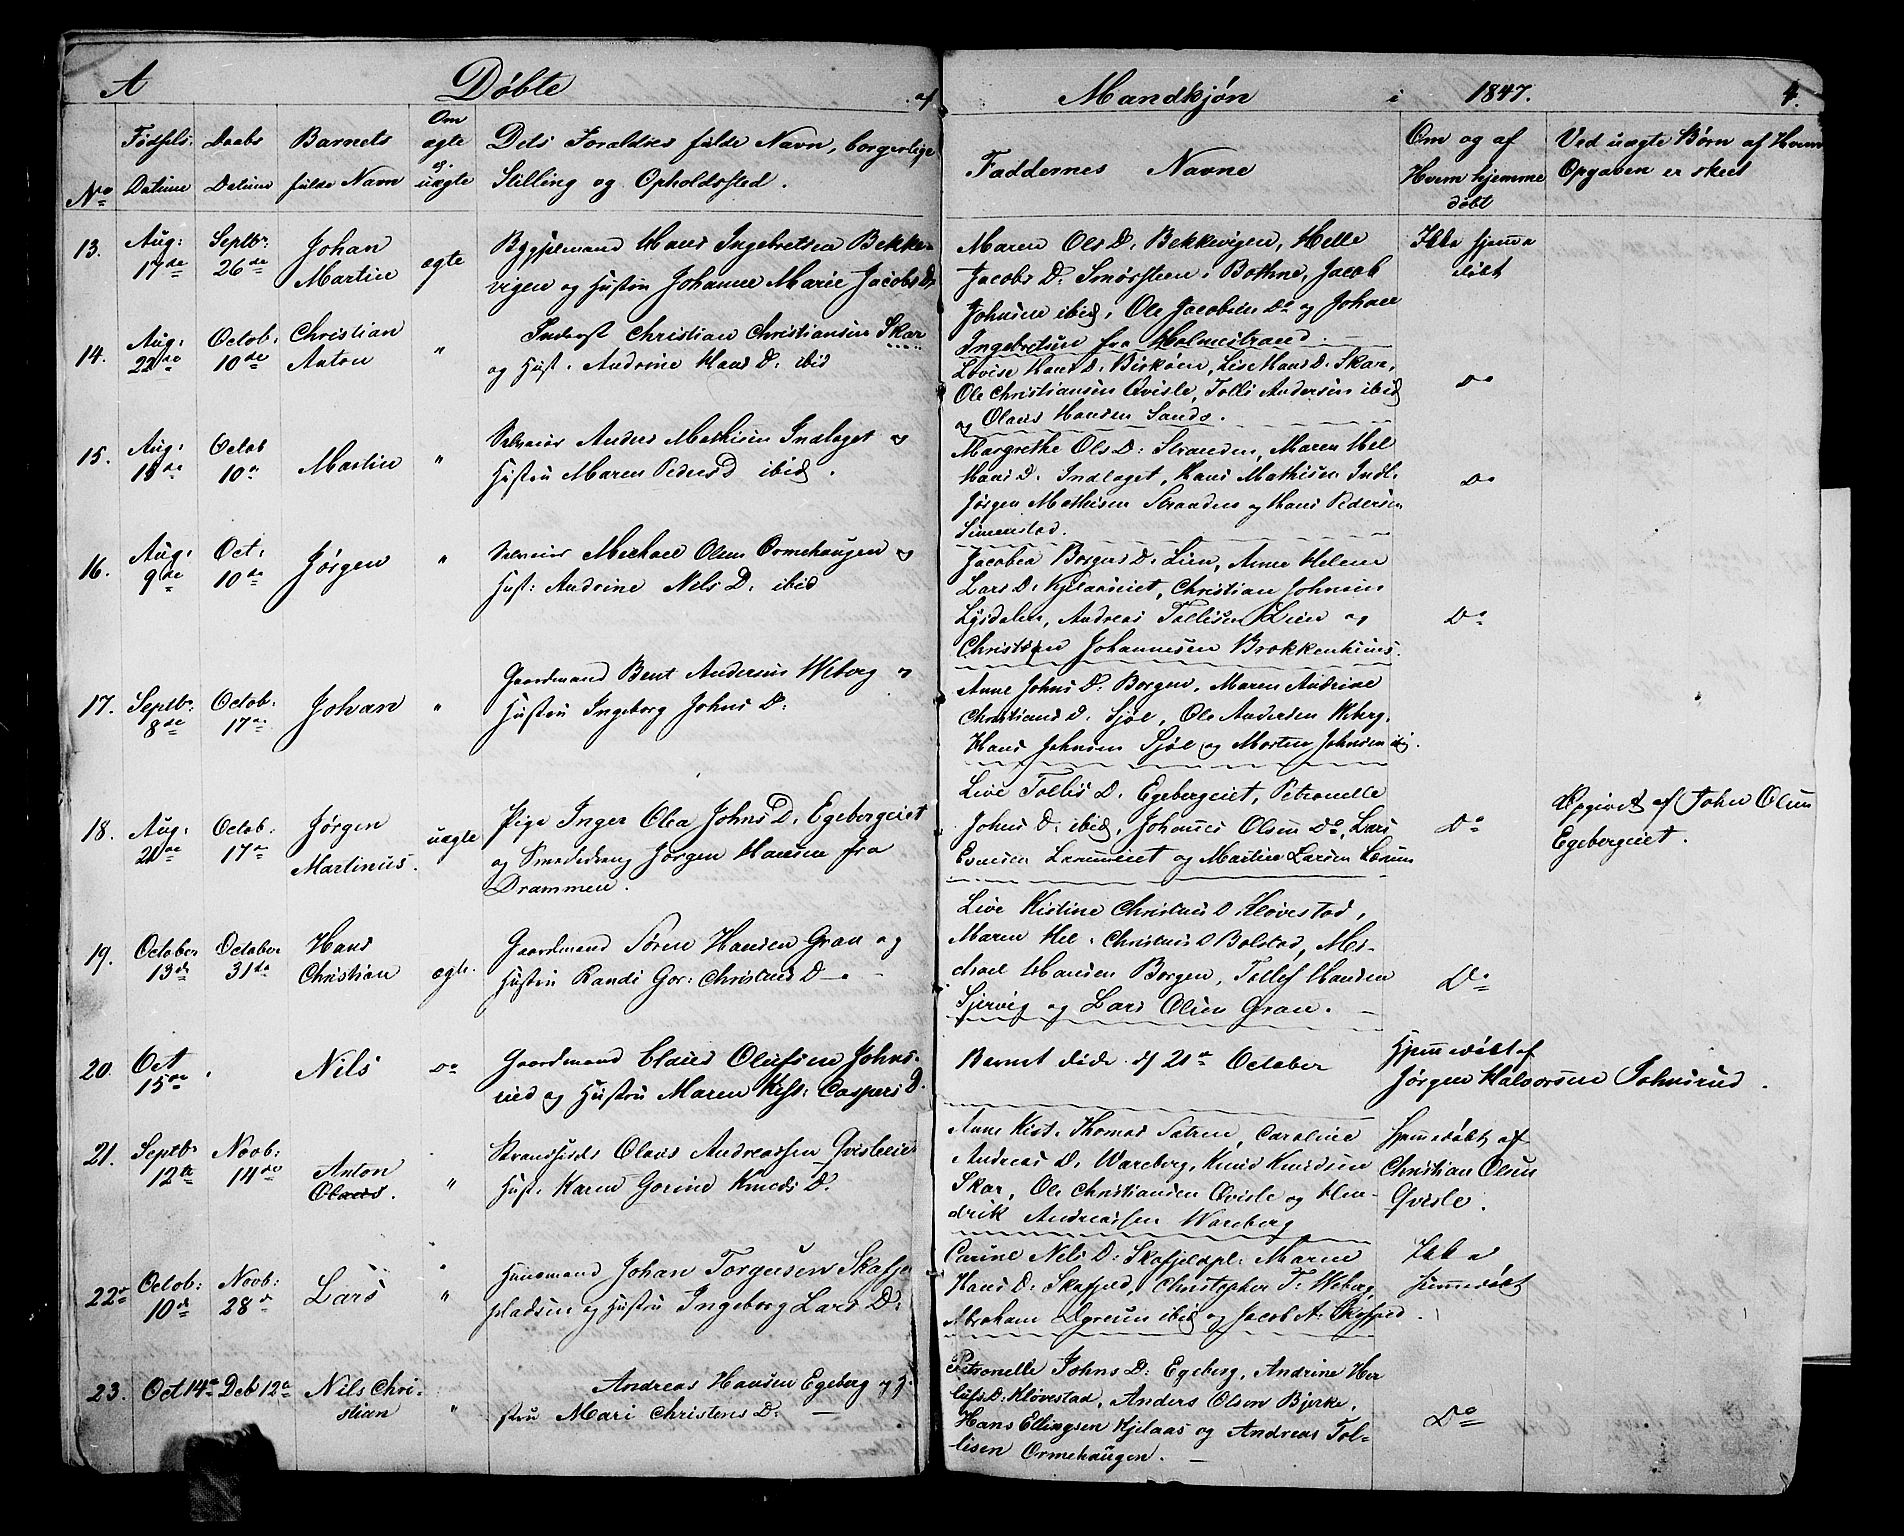 A Døbte af Mandkjøn i 1847. 4.
No Fødsels Datum Daabs Datum Barnets fulde Navn Om ægte el. uægte Dets Forældres fulde Navn, borgerlige Stilling og Opholdssted. Faddernes Navne Om og af Hvem hjemme døbt Ved uægte Børn af Hvem Opgaven er skeet
13. Aug: 17de Septbr. 26de Johan Martin ægte
Bygselmand Hans Ingebretsen Bekke-
vigen og Hustru Johanne Marie Jacobs D.
Maren Ols D. Bekkevigen, Helle
Jacobs D. Smørsteen, Bothne, Jacob
Johnsen ibid, Ole Jacobsen Do og Johan
Ingebretsen fra Holmestrand.
Ikke hjemme
døbt
14. Aug: 22de Octob: 10de Christian Anton "
Inderst Christian Christiansen Skar
og Hust. Andrine Hans D. ibid
Lovise Hans D. Birkøen, Lise Hans D. Skar,
Ole Christiansen Qvisle, Tollef Andersen ibid
og Olaus Hansen Sande.
Do
15. Aug: 15de Octob 10de Martin "
Selveier Anders Mathisen Indlaget og
Hustru Maren Peders D ibid.
Margrethe Ols D: Stranden, Maren Hel
Hans D. Indlaget, Hans Mathisen Indl.
Jørgen Mathisen Stranden og Hans Pedersen
Simenstad.
Do
16. Aug: 9de Oct: 10de Jørgen "
Selveier Michael Olsen Ormehaugen og
Hust: Andrine Nels D. ibid
Jacobea Borgers D. Lien, Anne Helene
Lars D. Kjelaaseiet, Christian Johnsen
Lysdalen, Andreas Tollisen Lien og
Christian Johannesen Brokkenhuus.
Do
17. Septbr. 8de Octob: 17de Johan "
Gaardmand Bent Andersen Weberg og
Hustru Ingeborg Johns D.
Anne Johns D. Borgen, Maren Andrine
Christians D. Sjøl, Ole Andersen Weberg,
Hans Johnsen Sjøl og Morten Johnsen ibid.
18. Aug: 21de Octob: 17de Jørgen Martinus. uægte
Pige Inger Olea Johns D. Egebergeiet
og Smededreng Jørgen Hansen fra
Drammen.
Live Tollis D. Egebergeiet, Petronelle
Johns D. ibid, Johannes Olsen Do, Lars
Evensen Lerumeiet og Martin Larsen Lerum
Do
Opgivet af John Olsen
Egebergeiet.
19. October 13de October 31de Hans Christian ægte.
Gaardmand Søren Hansen Gran og
Hustru Randi Gor: Christens D.
Live Kistine Christens D Kløvestad,
Maren Hel: Christens D Bolstad, Mi-
chael Hansen Borgen, Tollef Hansen
Sjervig og Lars Olsen Gran.
Do
20. Oct 15de Nils Do
Gaardmand Claus Olufsen Johns-
rud og Hustru Maren Kist: Caspers D.
Barnet døde d 21de October
Hjemmedøbt af
Jørgen Halvorsen Johnsrud.
21. Septbr 12te Novb: 14de Anton Olaus. "
Strandsidder Olaus Andreassen Qvisleeie
Hust. Karen Gorine Knuds D.
Anne Kist. Thomas Sætren, Caroline
Andreas D. Wareberg, Knud Knudsen
Skar, Ole Christiansen Qvisle og Hen-
drik Andreassen Wareberg
Hjemmedøbt af
Christian Olsen
Qvisle.
22de Octob: 10de Novb: 28de Lars "
Huusmand Johan Torgersen Skafje-
pladsen og Hustru Ingeborg Lars D.
Carine Nels D: Skafjeldpl. Maren
Hans D. Skafjeld, Christopher T. Weberg,
Abraham ibid og Jacob A. Skafjeld.
Ikke
hjemmedøbt
23. Oct 14de Deb 12te Nils Chri- stian "
Andreas Hansen Egeberg og H.
stru Mari Christens D.
Petronelle Johns D: Egeberg, Andrine Her
lufs D: Kløvestad, Anders Olsen Bjerke,
Hans Ellingsen Kjelaas og Andreas Tol-
lisen Ormehaugen.
Do